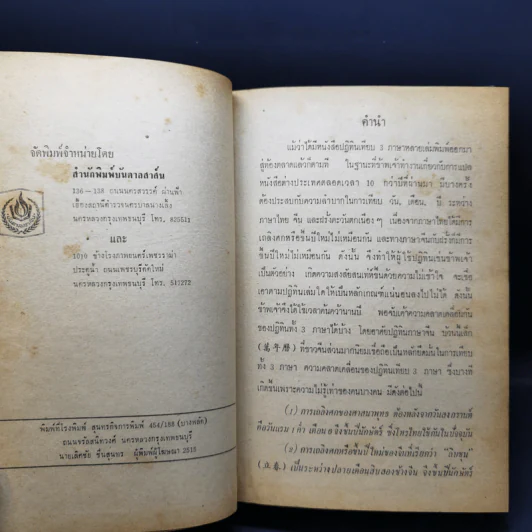 จัดพิมพ์จำหน่ายโดย
สำนักพิมพ์บันดาลสาส์น
136 - 138 ถนนนครสวรรค์ ผ่านฟ้า
เชิงสถานีตำรวจนครบาลนางเลิ้ง
นครหลวงกรุงเทพธนบุรี โทร. 825521
และ
1010 ข้างโรงภาพยนตร์เพชรรามา
ประตูน้ำ ถนนเพชรบุรีตัดใหม่
นครหลวงกรุงเทพธนบุรี โทร. 517272
พิมพ์ที่โรงพิมพ์ สุนทรกิจการพิมพ์ 454/188 (บางพลัด)
ถนนจรัลสนิทวงศ์ นครหลวงกรุงเทพธนบุรี
นายเลิศชัย ชื่นสุนทร ผู้พิมพ์ผู้โฆษณา 2515
คำนำ
แม้ว่าได้มีหนังสือปฏิทินเทียบ 3 ภาษาหลายเล่มพิมพ์ออกมา
สู่ท้องตลาดแล้วก็ตามที ในฐานะที่ข้าพเจ้าทำงานเกี่ยวกับการแปล
หนังสือต่างประเทศตลอดเวลา 10 กว่าปีที่ผ่านมา มีบางครั้ง
ต้องประสบกับความลำบากในการเทียบ วัน, เดือน, ปี ระหว่าง
ภาษาไทย จีน และฝรั่งตะวันตกเนืองๆ เนื่องจากภาษาไทยได้มีการ
เถลิงศกหรือขึ้นปีใหม่ไม่เหมือนกัน และทางภาษาจีนกับฝรั่งก็มีการ
ขึ้นปีใหม่ไม่เหมือนกัน ดังนั้น จึงทำให้ผู้ใช้ปฏิทินเช่นข้าพเจ้า
เป็นตัวอย่าง เกิดความสงสัยสนเท่ห์ขึ้นด้วยความไม่เข้าใจ จะเชื่อ
เอาตามปฏิทินเล่มใดให้เป็นหลักเกณฑ์แน่นอนลงไปไม่ได้ ดังนั้น
ข้าพเจ้าจึงได้ใช้เวลาค้นคว้านานปี พอจับเค้าความคลาดเคลื่อนกัน
ของปฏิทินทั้ง 3 ภาษาได้บ้าง โดยอาศัยปฏิทินภาษาจีน
(萬年曆) ที่ชาวจีนส่วนมากนิยมเชื่อถือเป็นหลักยึดมั่นในการเทียบ
ทั้ง 3 ภาษา ความคลาดเคลื่อนของปฏิทินเทียบ 3 ภาษา ซึ่งบางที
เกิดขึ้นเพราะความไม่รู้เท่าของคนบางคน มีดังต่อไปนี้
(๑) การเถลิงศกของศาสนาพุทธ ต้องหลังจากวันสงกรานต์
คือวันแรม ๑ ค่ำ เดือน ๖ จึงขึ้นปีนักษัตร์ ซึ่งโหรไทยใช้กันในปัจจุบัน
(๒) การเถลิงศกหรือขึ้นปีใหม่ของจีนที่เรียกว่า "ลิบชุน"
(立春) เป็นระหว่างปลายเดือนสิบสองข้างจีน จึงขึ้นปีนักษัตร์